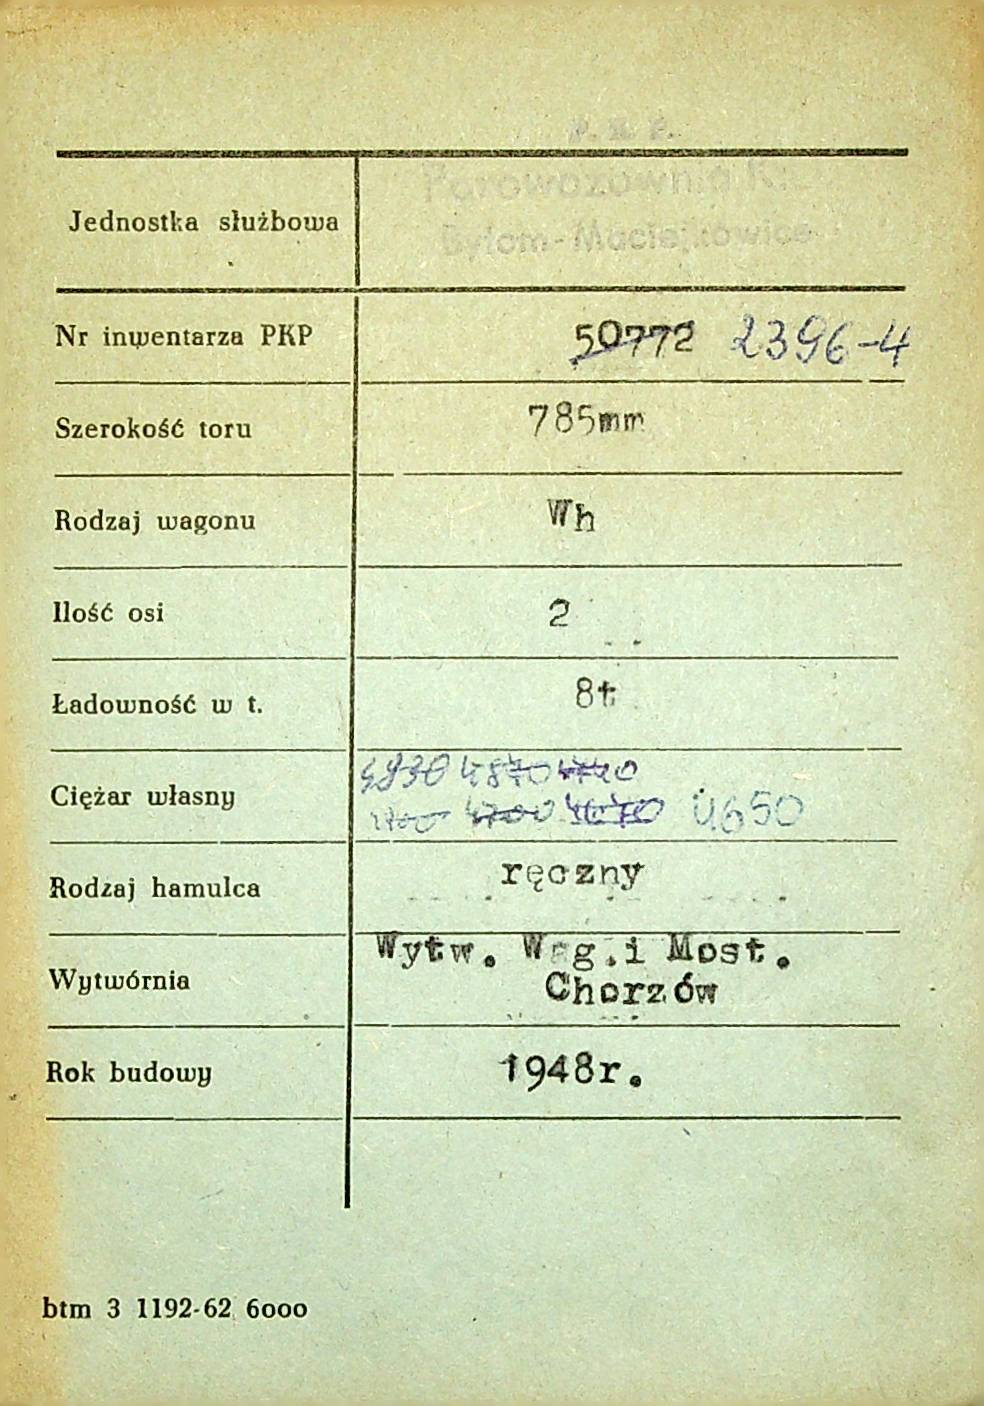 P. K. P.
Parowozownia
Bytom-Maciejkowice
Jednostka służbowa
Nr inwentarza PKP 50772 2396-4
Szerokość toru 785mm
Rodzaj wagonu Wh
Ilość osi 2
Ładowność w t. 8t
Ciężar własny 4930 4870 4740
4700 4700 4670 4650
Rodzaj hamulca ręczny
Wytwórnia Wytw. Wag.i Most.
Chorzów
Rok budowy 1948r.
btm 3 1192-62 6000